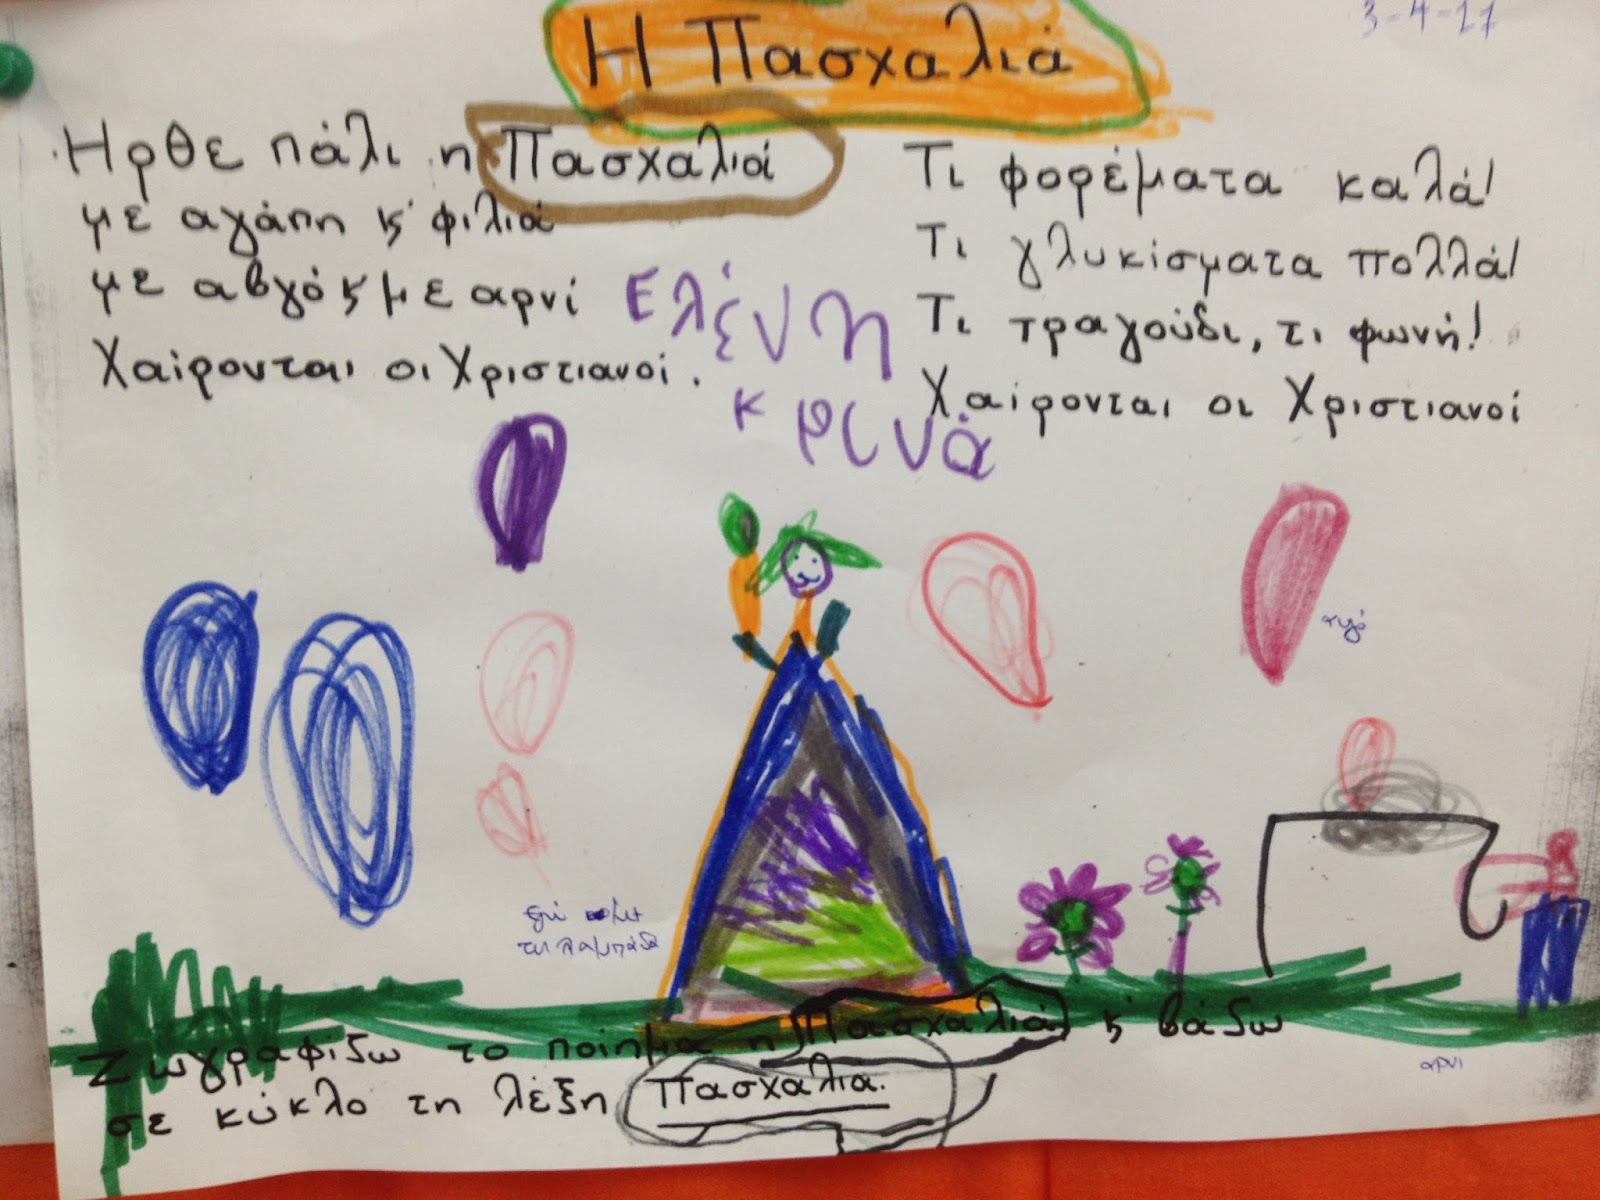 3-4-17
Η Πασχαλιά
Ηρθε πάλι η Πασχαλιά
με αγάπη ϗ φιλιά
με αβγό ϗ με αρνί
Χαίρονται οι Χριστιανοί.
Τι φορέματα καλά!
Τι γλυκίσματα πολλά!
Τι τραγούδι, τι φωνή!
Χαίρονται οι Χριστιανοί
Ελένη
κρινά
αυγό
τη λαμπάδα
αρνι
Ζωγραφίζω το ποίημα η Πασχαλιά ϗ βάζω
σε κύκλο τη λέξη Πασχαλια.